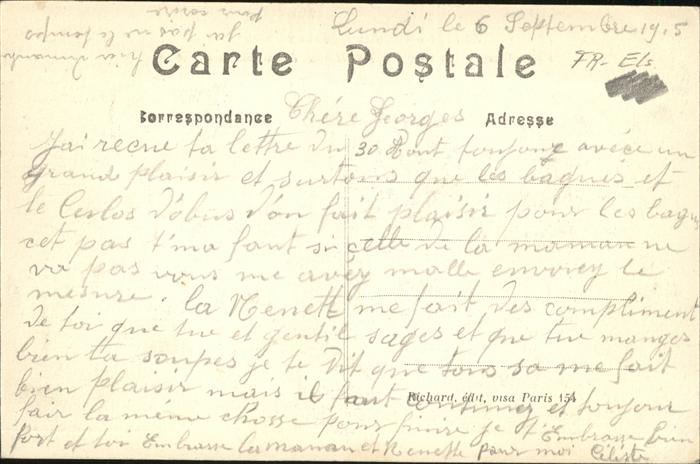 Lundi le 6 Septembre 1915
jai pas ue le temps
pour
FR- Els
Carte Postale
Correspondance
Adresse
Chére Georges
Jai recue ta lettre du 30 Aout toujour avéce un
grand plaisir et surtous que les bagues et
le d'obus d'on fait plaisir pour les bagues
cet pas t'ma faut si celle de la maman ne
va pas vous me avéz malle envoyez le
mesure. la Nenette me fait des compliment
de toi que tue et gentil sages et que tue manges
bien ta soupes je te dit que tous sa me fait
bien plaisir mais il faut continuez et toujour
Richard, édit, visa Paris 154
fair la méme chosse pour finire je t'Embrasse bien
fort et toi Embrasse la maman et Nenette pour moi Céleste